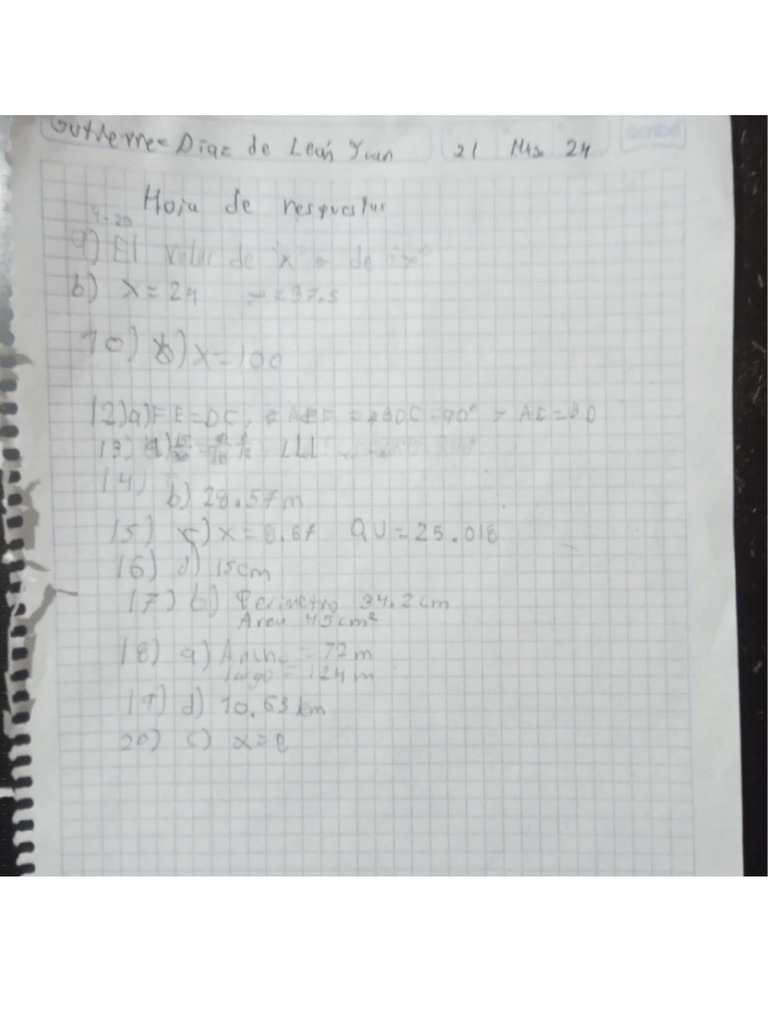 Gutierrez Diaz de León Yvan 21 May 24
scribe
Hoja de respuestas
9-20
9) El valor de "x" y de "y"
b) x = 24 y = 37.5
10) b) x = 100
12) a) FE = DC,
13)
LLL
14)
b) 28.57 m
15) c) x = 8.67 QU = 25.018
16) d) 15cm
17) b) Perimetro 34.2 cm
Area 45 cm²
18) a) Ancho = 72 m
largo = 124 m
19) d) 10.63 km
20) c) x = 8